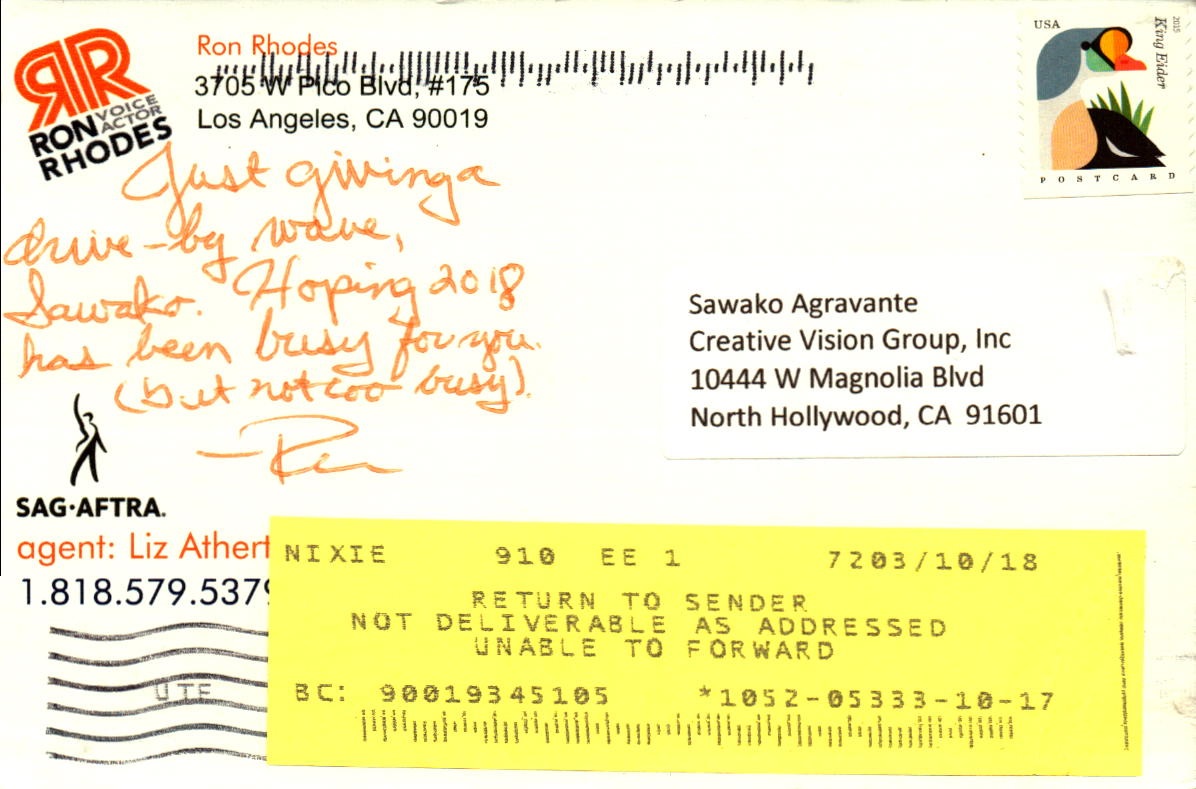 RR
RON VOICE ACTOR
RHODES
Ron Rhodes
3705 W Pico Blvd, #175
Los Angeles, CA 90019
USA
2015
King Eider
POSTCARD
Just giving a
drive-by wave,
Sawako. Hoping 2018
has been busy for you.
(but not too busy).
—Ron
Sawako Agravante
Creative Vision Group, Inc
10444 W Magnolia Blvd
North Hollywood, CA 91601
SAG·AFTRA.
agent: Liz Athert
1.818.579.5379
NIXIE 910 EE 1 7203/10/18
RETURN TO SENDER
NOT DELIVERABLE AS ADDRESSED
UNABLE TO FORWARD
BC: 90019345105 *1052-05333-10-17
UTF